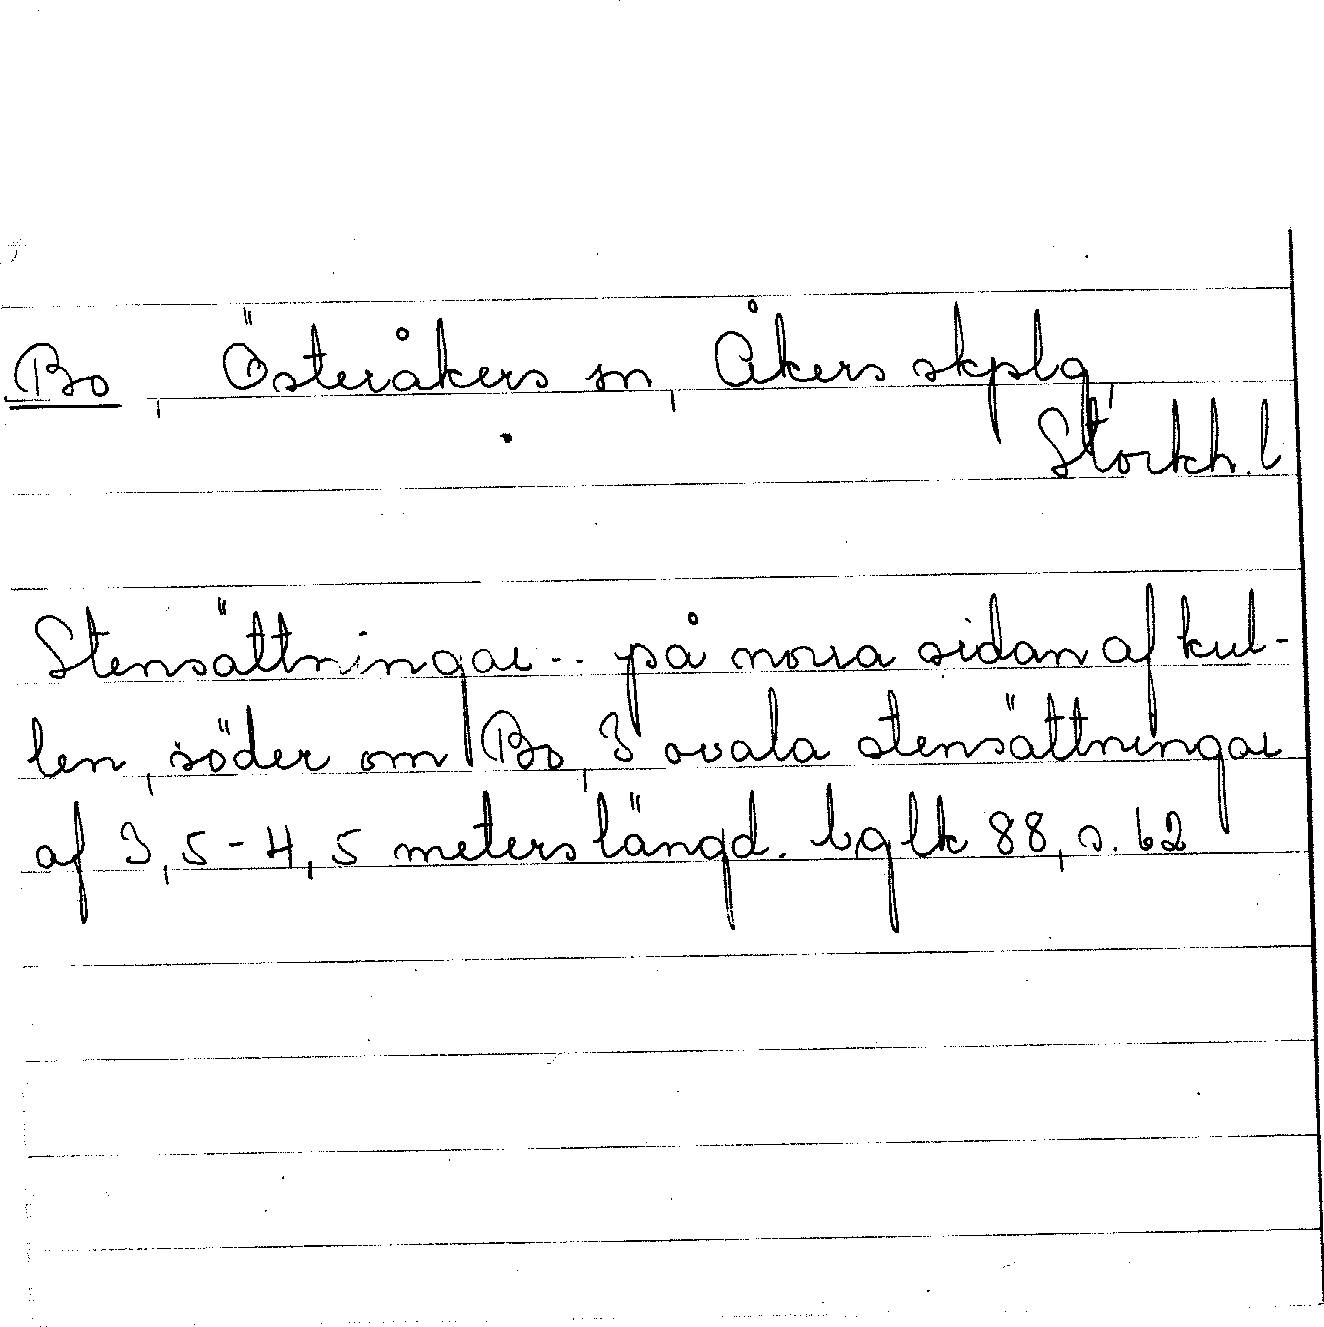 Bo, Österåkers sn, Åkers skplg,
Stockh. l
Stensättningar.. på norra sidan af kul-
len, söder om Bo, 3 ovala stensättningar
af 3,5-4,5 meters längd. bglk 88, s. 62